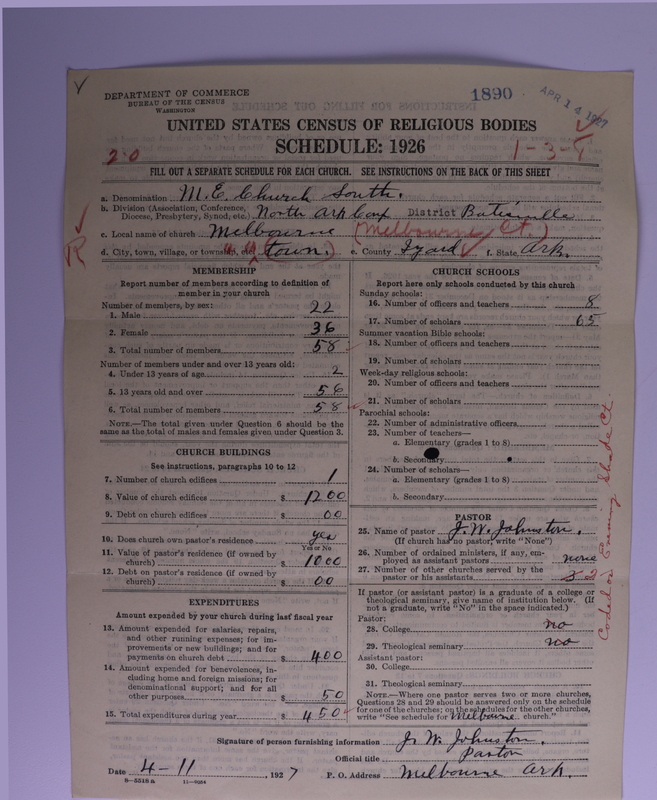 DEPARTMENT OF COMMERCE
BUREAU OF THE CENSUS
WASHINGTON
1890
APR 14 1927
UNITED STATES CENSUS OF RELIGIOUS BODIES
SCHEDULE: 1926
2.0
1-3-1
FILL OUT A SEPARATE SCHEDULE FOR EACH CHURCH. SEE INSTRUCTIONS ON THE BACK OF THIS SHEET
a. Denomination M.E. Church South.
b. Division (Association, Conference, Diocese, Presbytery, Synod, etc.) North Ark Conf District Batesville
c. Local name of church Melbourne (Melbourne Ct.)
R
d. City, town, village, or township, etc. (town.) e. County Izard f. State Ark.
MEMBERSHIP
Report number of members according to definition of member in your church
Number of members, by sex:
1. Male 22
2. Female 36
3. Total number of members 58
Number of members under and over 13 years old:
4. Under 13 years of age 2
5. 13 years old and over 56
6. Total number of members 58
NOTE.—The total given under Question 6 should be the
same as the total of males and females given under Question 3.
CHURCH BUILDINGS
See instructions, paragraphs 10 to 12
7. Number of church edifices 1
8. Value of church edifices $ 1200
9. Debt on church edifices $ 00
10. Does church own pastor's residence yes
Yes or No
11. Value of pastor's residence (if owned by
church) $ 1000
12. Debt on pastor's residence (if owned by
church) $ 00
EXPENDITURES
Amount expended by your church during last fiscal year
13. Amount expended for salaries, repairs,
and other running expenses; for im-
provements or new buildings; and for
payments on church debt $ 400
14. Amount expended for benevolences, in-
cluding home and foreign missions; for
denominational support; and for all
other purposes $ 50
15. Total expenditures during year $ 450
CHURCH SCHOOLS
Report here only schools conducted by this church
Sunday schools:
16. Number of officers and teachers 8
17. Number of scholars 65
Summer vacation Bible schools:
18. Number of officers and teachers
19. Number of scholars
Week-day religious schools:
20. Number of officers and teachers
21. Number of scholars
Parochial schools:
22. Number of administrative officers
23. Number of teachers—
a. Elementary (grades 1 to 8)
b. Secondary
24. Number of scholars—
a. Elementary (grades 1 to 8)
b. Secondary
PASTOR
25. Name of pastor J. W. Johnston.
(If church has no pastor, write "None")
26. Number of ordained ministers, if any, em-
ployed as assistant pastors none
27. Number of other churches served by the
pastor or his assistants
If pastor (or assistant pastor) is a graduate of a college or
theological seminary, give name of institution below. (If
not a graduate, write "No" in the space indicated.)
Pastor:
28. College no
29. Theological seminary no
Assistant pastor:
30. College
31. Theological seminary
NOTE.—Where one pastor serves two or more churches,
Questions 28 and 29 should be answered only on the schedule
for one of the churches; on the schedules for the other churches,
write "See schedule for Melbourne church."
Signature of person furnishing information J. W. Johnston.
Official title Pastor
Date 4-11, 1927 P. O. Address Melbourne Ark.
8—5518 a 11—9034